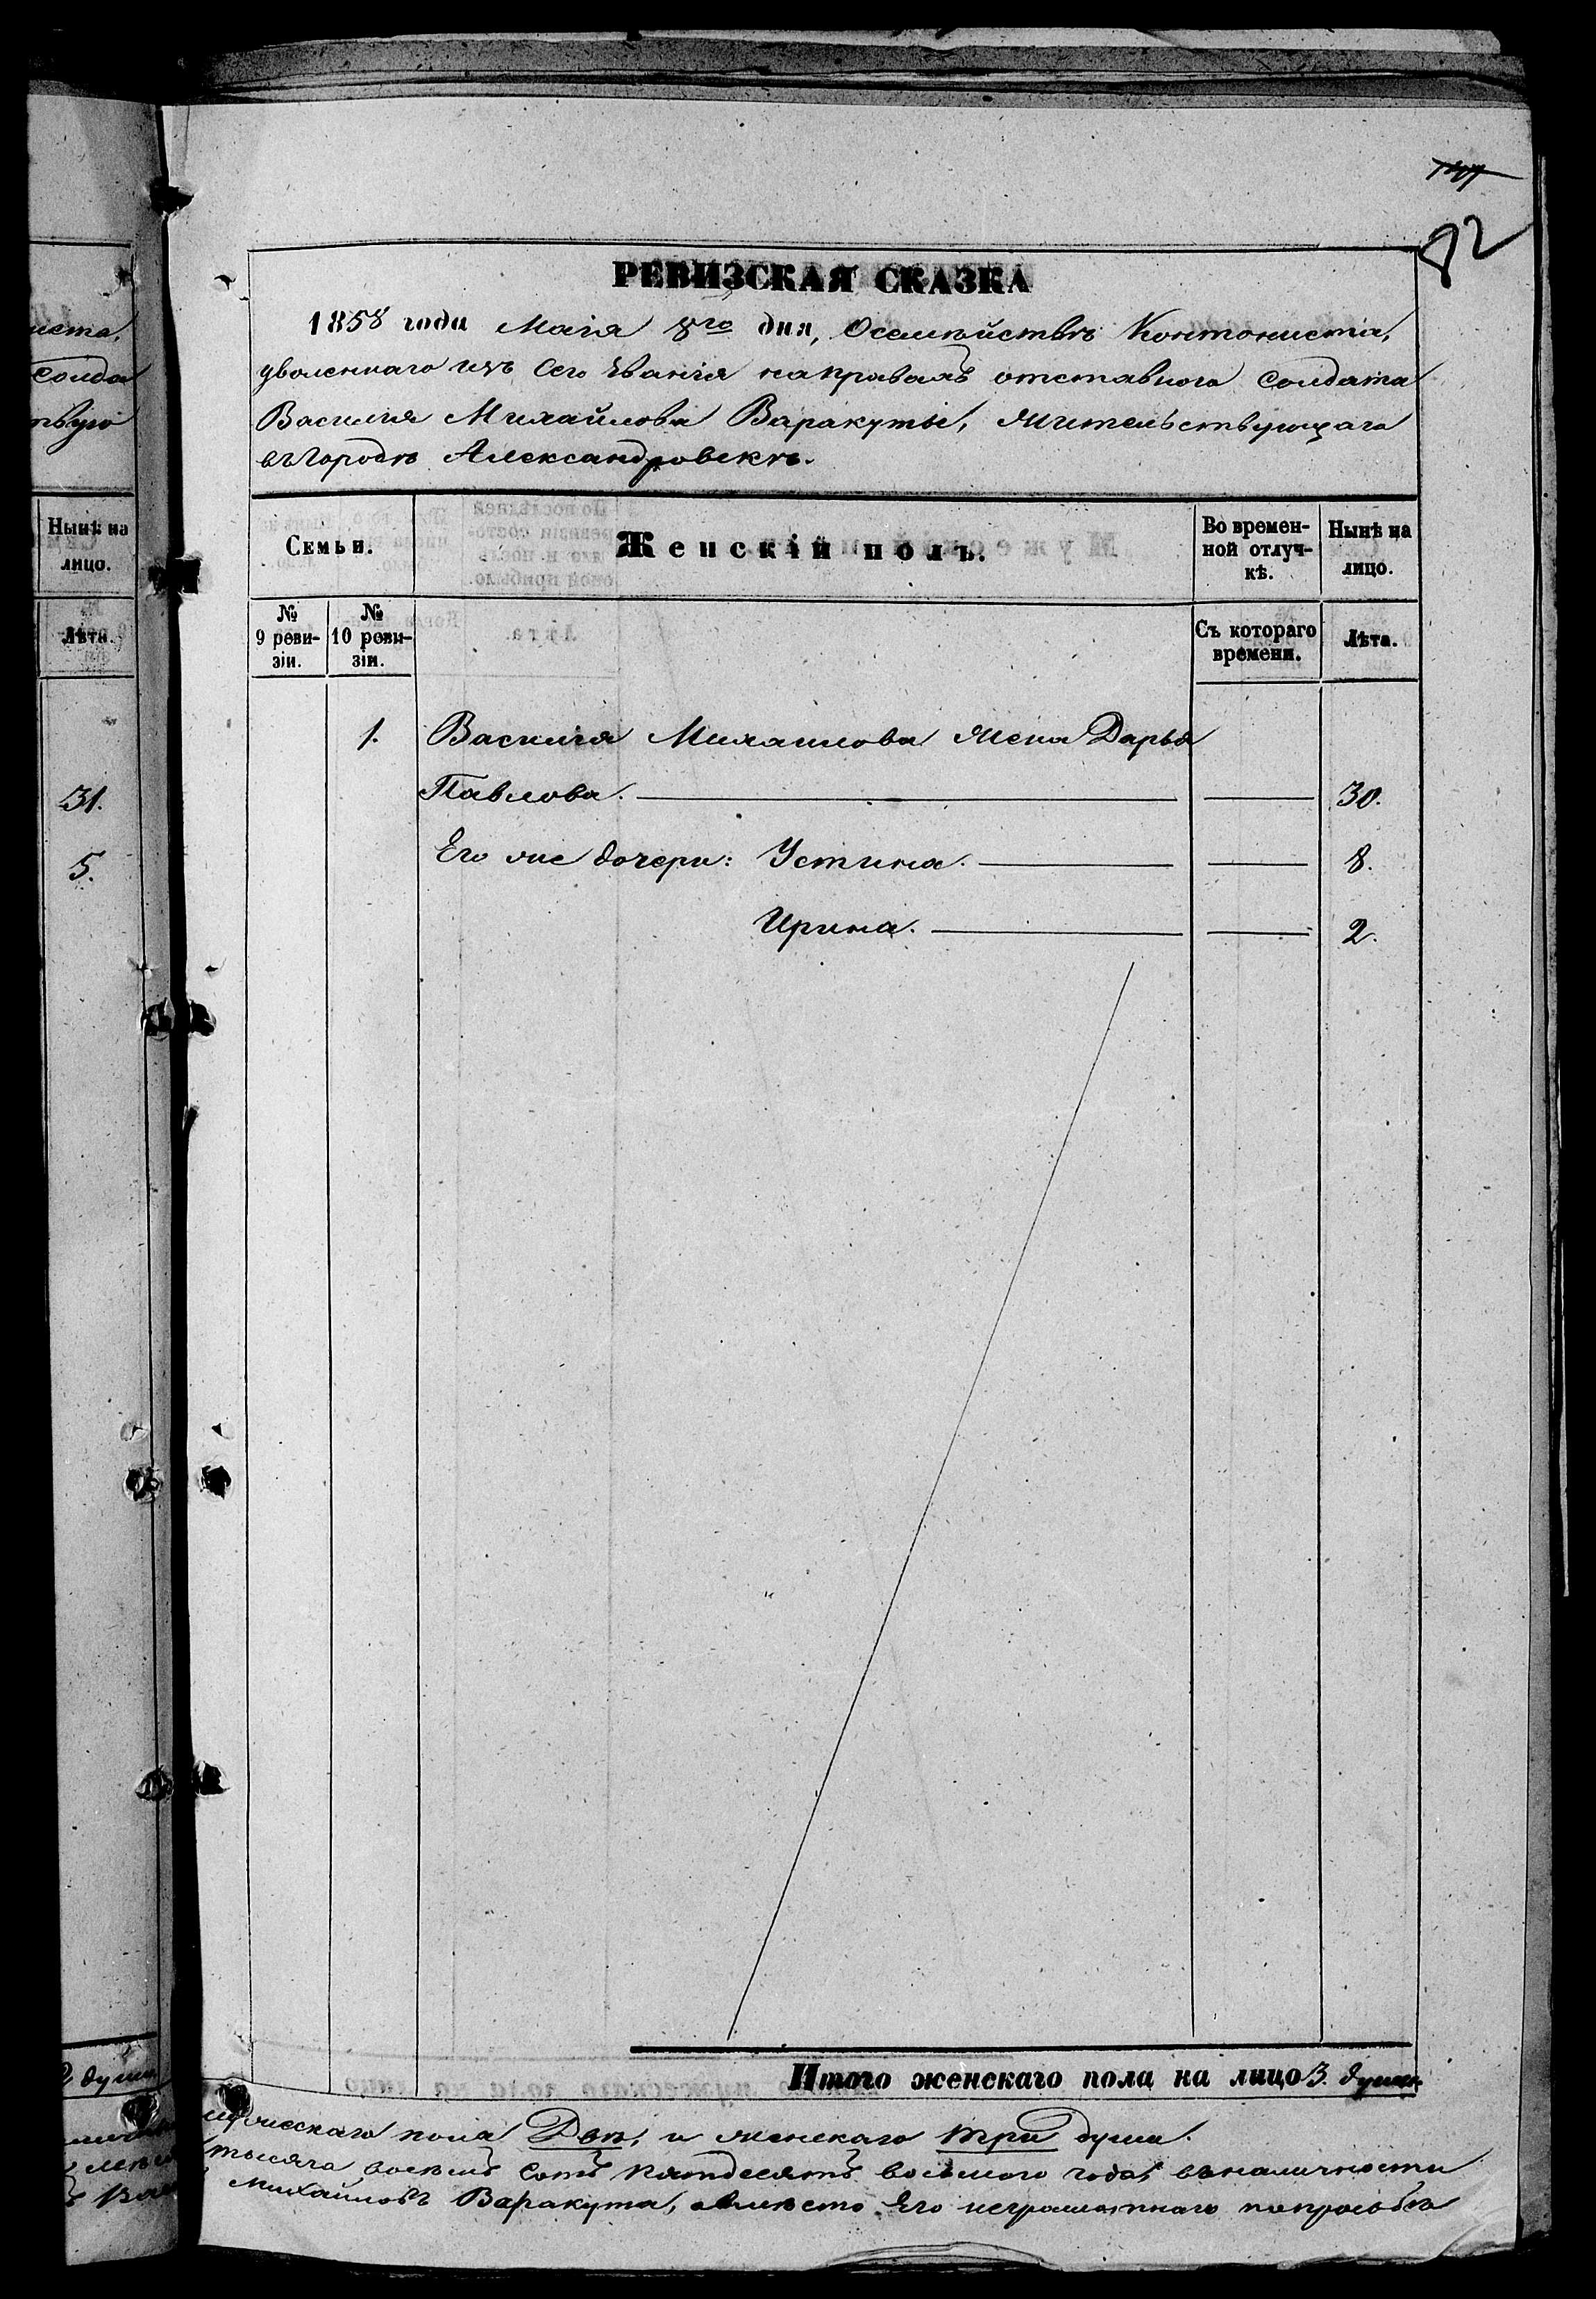 иста,
Солда
твую
Нынѣ на
лицо.
Лѣта.
31.
5.
2 души
82
РЕВИЗСКАЯ СКАЗКА
1858 года Маія 8го дня, Осемѣйствѣ Контониста,
уволеннаго изъ Сего Званія направахъ отставного Солдата
Василія Михайлова Варакуты, жительствующаго
въ Городѣ Александровскѣ.
Семьи.
Женскій полъ.
Во времен-
ной отлуч-
кѣ.
Нынѣ на
лицо.
№
9 реви-
зіи.
№
10 реви-
зіи.
Съ котораго
времени.
Лѣта.
1. Василія Михаилова жена Дарья
Павлова. 30.
Его же дочери: Устина. 8.
Ирина. 2.
Итого женскаго пола на лицо 3. души.
мужескаго пола Двѣ, и женскаго три души.
тысяча восемь Сотъ пятдесятъ восьмого года, въ наличности
Михайловъ Варакута, авмѣсто Его неграмотнаго по прозьбѣ